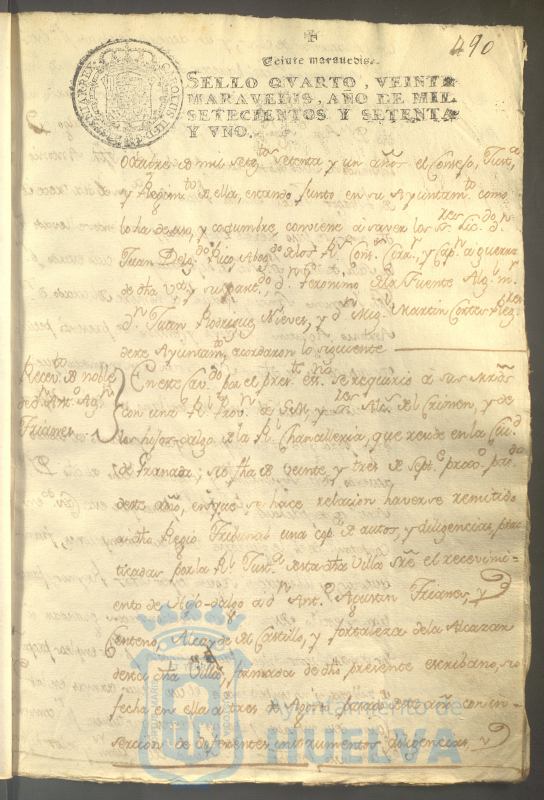 490
Veinte maravedis.
SELLO QVARTO, VEINTE
MARAVEDIS, AÑO DE MIL
SETECIENTOS Y SETENTA
Y VNO.
Octubre de mil setezos setenta y un años el Consejo, Justa
y Regimto de ella, estando junto en su Ayuntamto como
lo ha de uso, y costumbre, conviene a saver los Sres Lic. do dn
Juan Delgdo Rico Abogdo de los Rs Cons. Corrr, y Capn a guerra
de dha Va y su partdo, dn Geronimo de la Fuente Algl mr
dn Juan Rodriguez Nieves, y dn Migl Martin Cortes Regres
de este Ayuntamto acordaron lo siguiente
Recevto de noble
de dn Anto Agn
Trianes
En este Cavdo por el preste esno se requirio a sus mrds
con una Rl Provn de S.M. y Sres Alcs del Crimen, y de
los hijos-dalgo de la Rl Chancilleria, que reside en la Ciud
de Granada; su fha de veinte, y tres de Septe proxo pasdo
de este año, en que se hace relacion haverse remitido
a dho Regio Tribunal una cop de autos, y diligencias prac
ticadas por la Rl Justa de esta dha Villa sre el recevimi-
ento de Hijo-dalgo a dn Anto Agustin Trianes, y
Centeno, Alcayde del Castillo, y fortaleza de la Alcazar
de esta dha Villa, firmada de dho presente escribano, su
fecha en ella a tres de Agosto pasado de este año con in
sercion de diferentes instrumentos diligencias, y
Ayuntamiento de
HUELVA